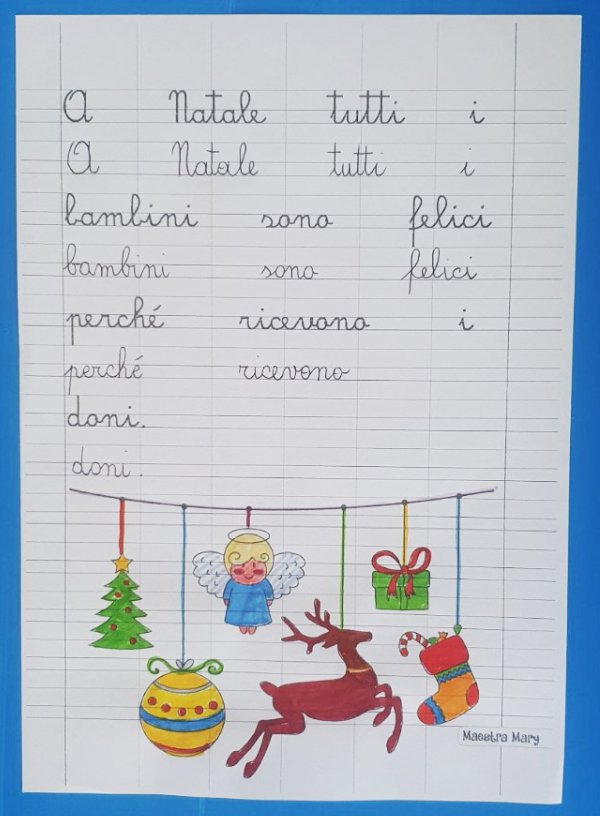 A Natale tutti i
A Natale tutti i
bambini sono felici
bambini sono felici
perché ricevono i
perché ricevono
doni.
doni.
Maestra Mary